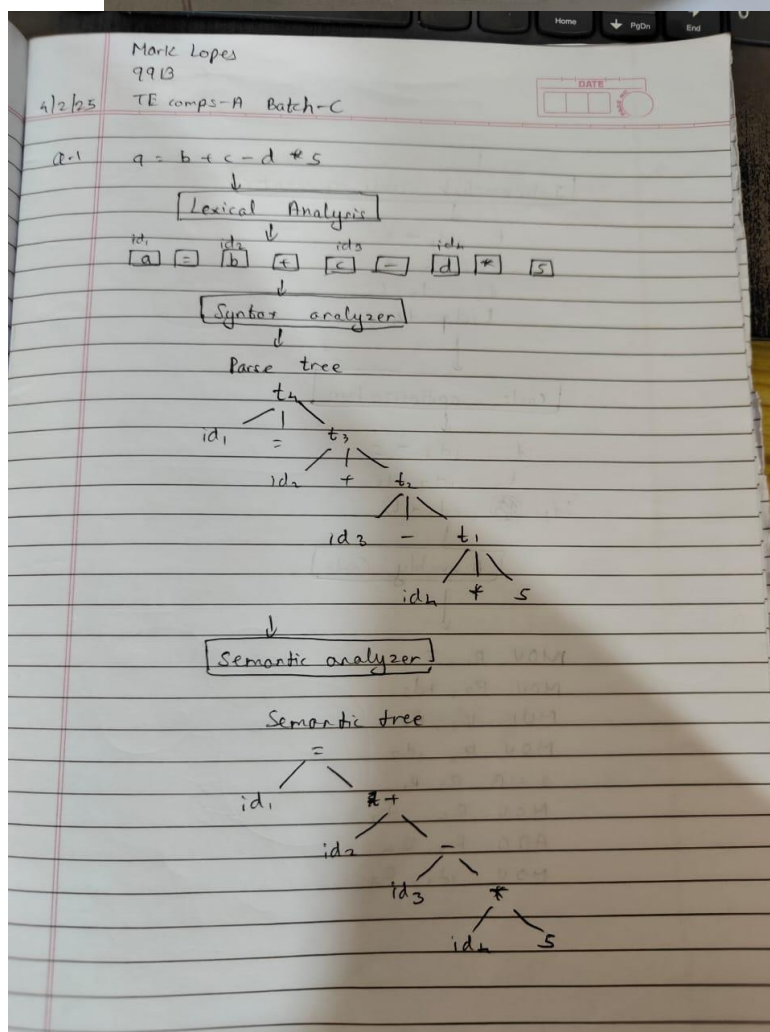 Home
PgDn
End
Mark Lopes
9913
4/2/25 TE comps-A Batch-C
DATE
Q.1 a = b + c - d * 5
↓
Lexical Analysis
↓
id1 id2 id3 id4
a = b + c - d * 5
↓
Syntax analyzer
↓
Parse tree
t4
id1 = t3
id2 + t2
id3 - t1
id4 * 5
↓
Semantic analyzer
Semantic tree
=
id1 +
id2 -
id3 *
id4 5